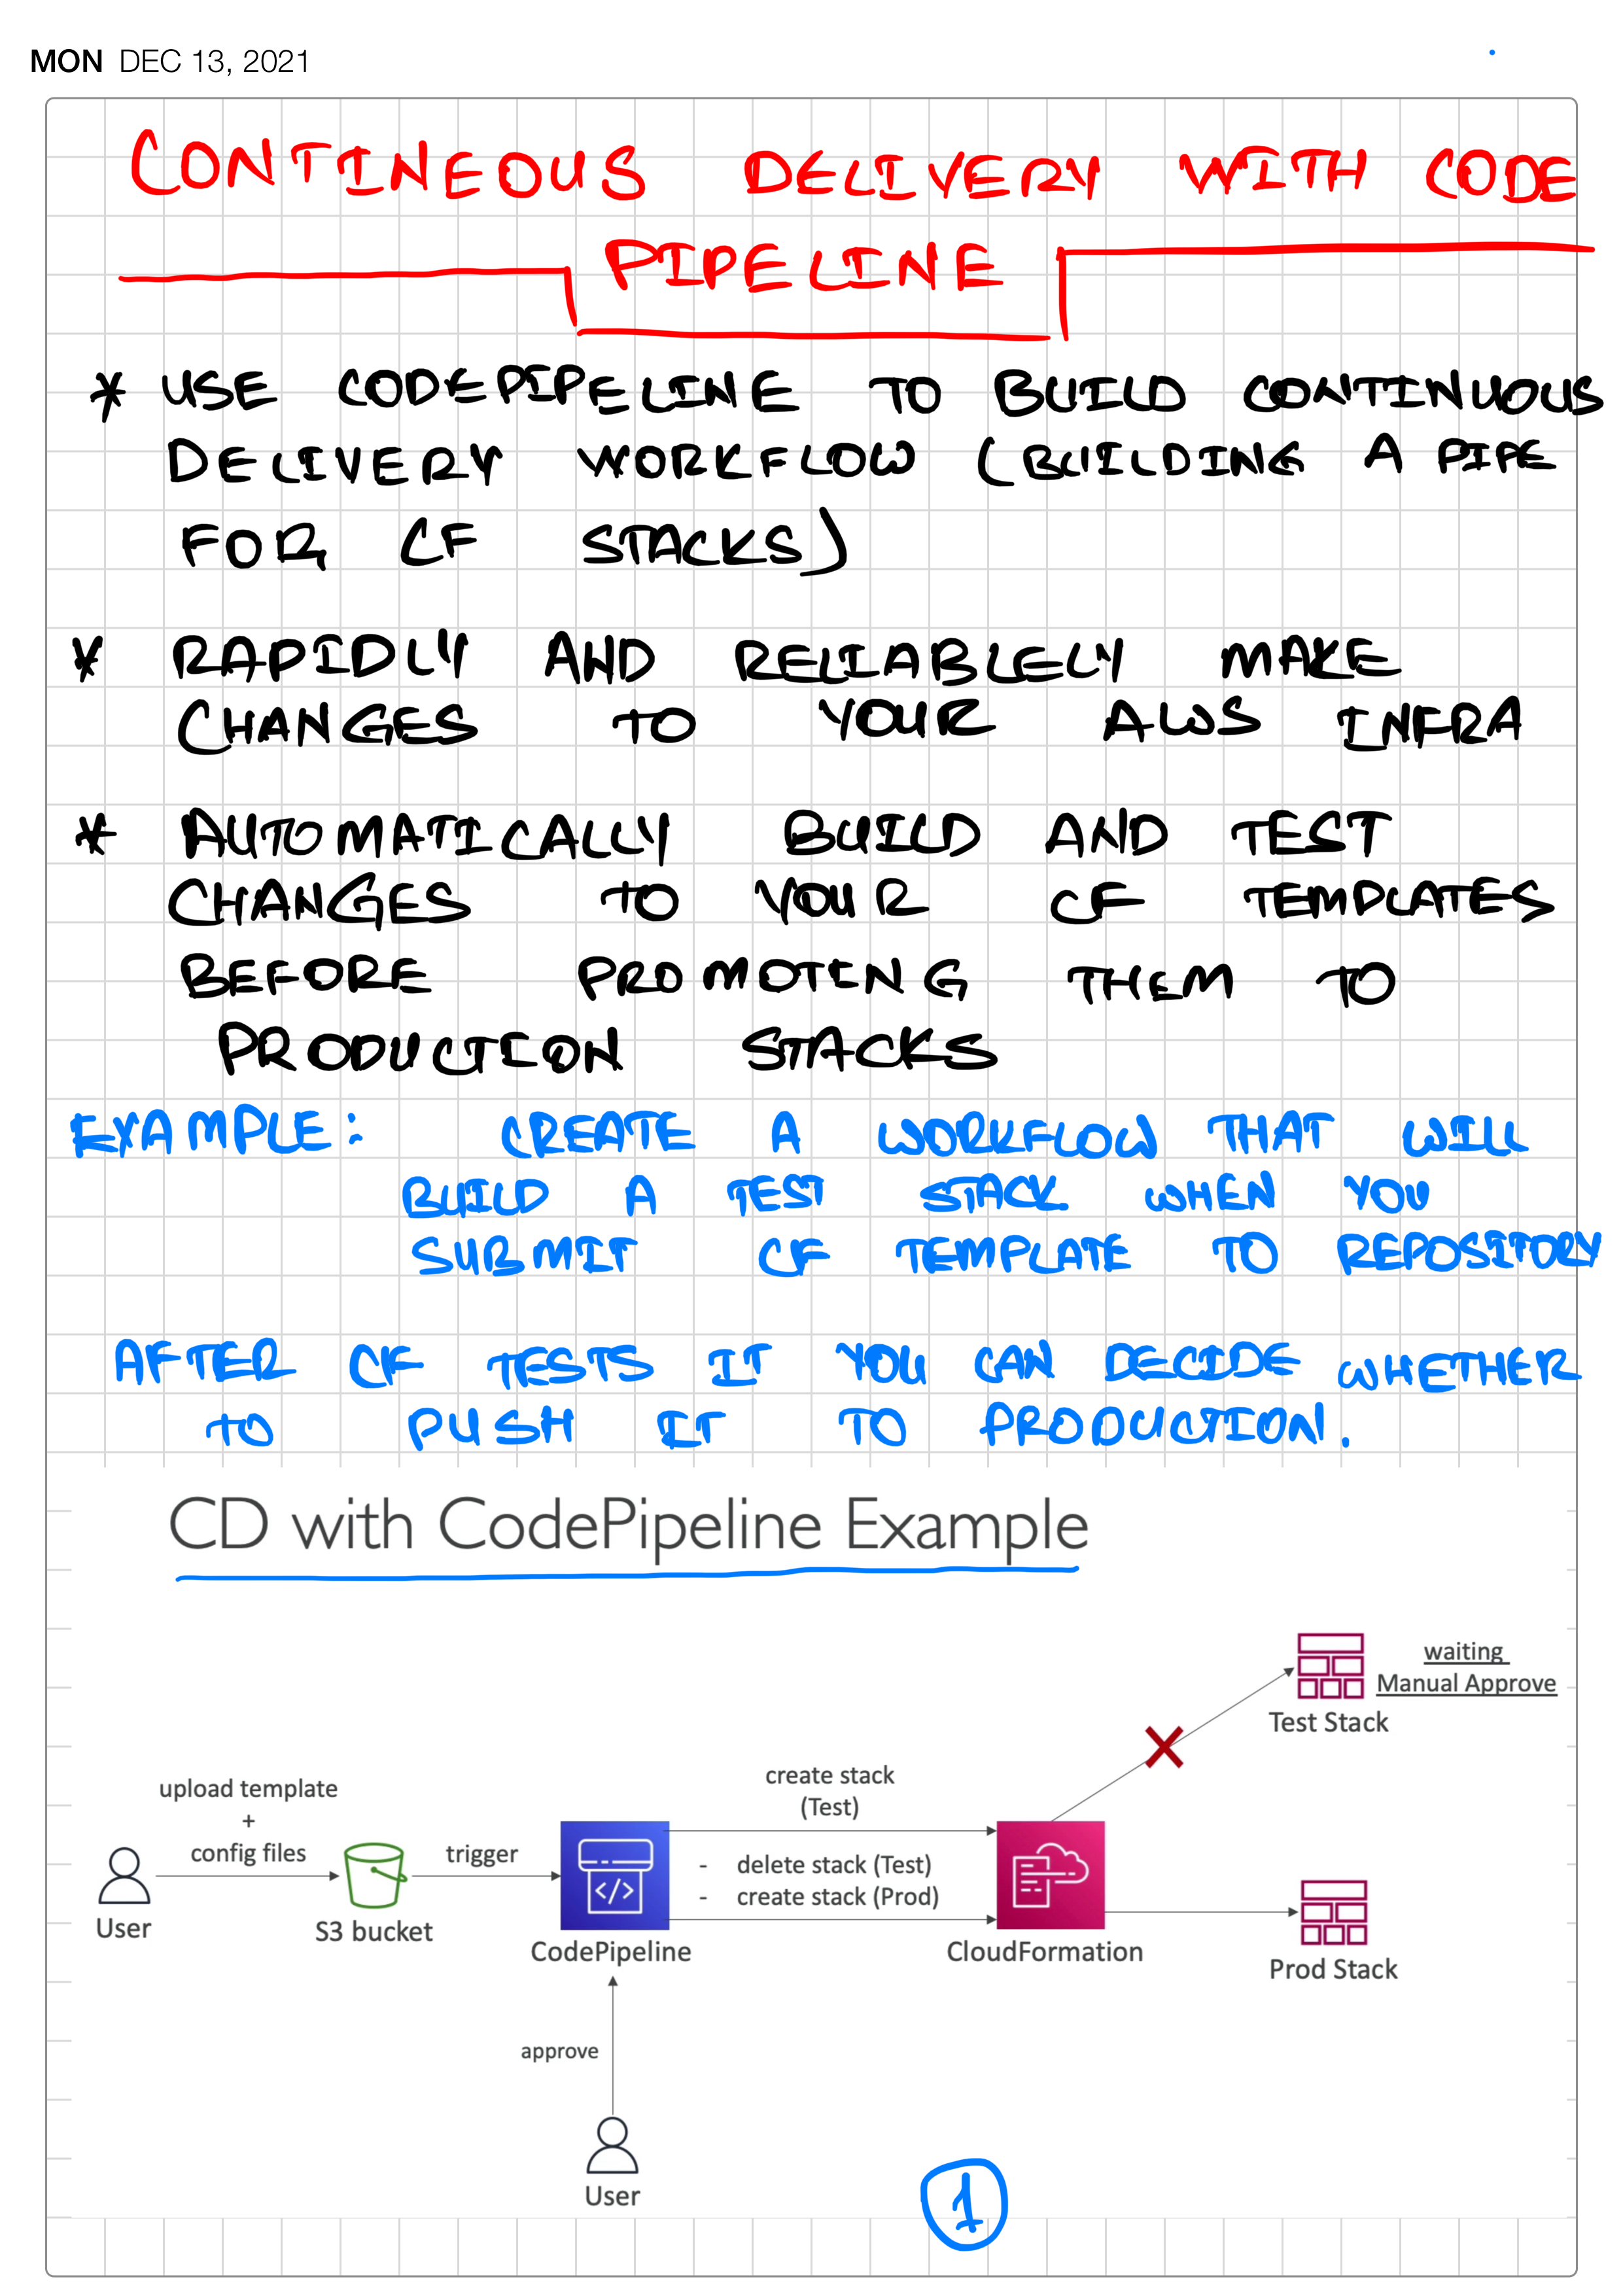 MON DEC 13, 2021
CONTINEOUS DELIVERY WITH CODE
PIPELINE
* USE CODEPIPELINE TO BUILD CONTINUOUS
DELIVERY WORKFLOW (BUILDING A PIPE
FOR CF STACKS)
* RAPIDLY AND RELIABLELY MAKE
CHANGES TO YOUR AWS INFRA
* AUTOMATICALLY BUILD AND TEST
CHANGES TO YOUR CF TEMPLATES
BEFORE PROMOTING THEM TO
PRODUCTION STACKS
EXAMPLE: CREATE A WORKFLOW THAT WILL
BUILD A TEST STACK WHEN YOU
SUBMIT CF TEMPLATE TO REPOSITORY
AFTER CF TESTS IT YOU CAN DECIDE WHETHER
TO PUSH IT TO PRODUCTION.
CD with CodePipeline Example
waiting
Manual Approve
Test Stack
create stack
(Test)
upload template
+
config files
trigger
- delete stack (Test)
- create stack (Prod)
User
S3 bucket
CodePipeline
CloudFormation
Prod Stack
approve
User
1